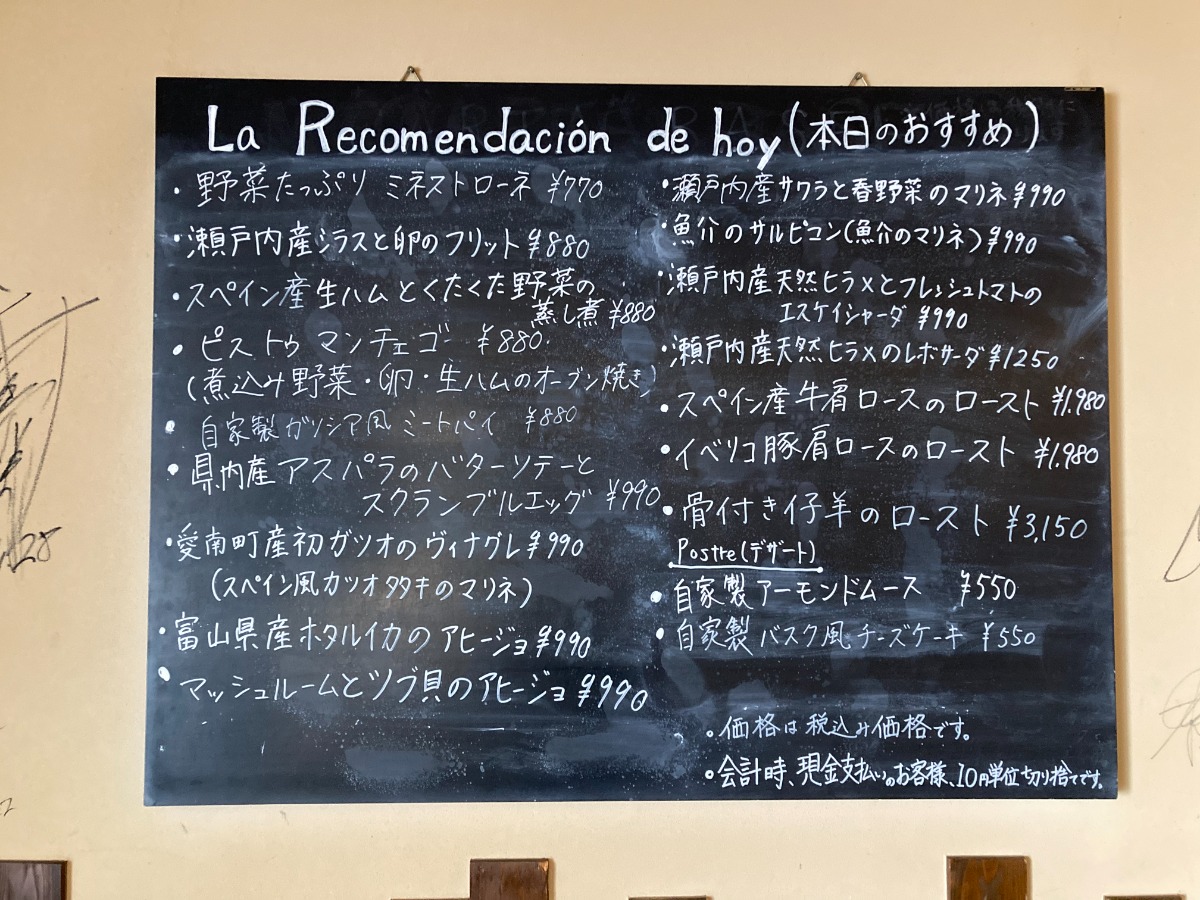 La Recomendación de hoy (本日のおすすめ)
・野菜たっぷり ミネストローネ ¥770
・瀬戸内産シラスと卵のフリット ¥880
・スペイン産生ハムとくたくた野菜の
蒸し煮 ¥880
・ピストゥ マンチェゴ ¥880.
(煮込み野菜・卵・生ハムのオーブン焼き)
・自家製ガリシア風 ミートパイ ¥880
・県内産アスパラのバターソテーと
スクランブルエッグ ¥990
・愛南町産初ガツオのヴィナグレ ¥990
(スペイン風カツオタタキのマリネ)
・富山県産ホタルイカのアヒージョ ¥990
・マッシュルームとツブ貝のアヒージョ ¥990
・瀬戸内産サワラと春野菜のマリネ ¥990
・魚介のサルピコン(魚介のマリネ) ¥990
・瀬戸内産天然ヒラメとフレッシュトマトの
エスケイシャーダ ¥990
・瀬戸内産天然ヒラメのレボサーダ ¥1250
・スペイン産牛肩ロースのロースト ¥1,980
・イベリコ豚肩ロースのロースト ¥1,980
・骨付き仔羊のロースト ¥3,150
Postre(デザート)
・自家製アーモンドムース ¥550
・自家製 バスク風チーズケーキ ¥550
。価格は税込み価格です。
。会計時、現金支払いのお客様、10円単位切り捨てです。